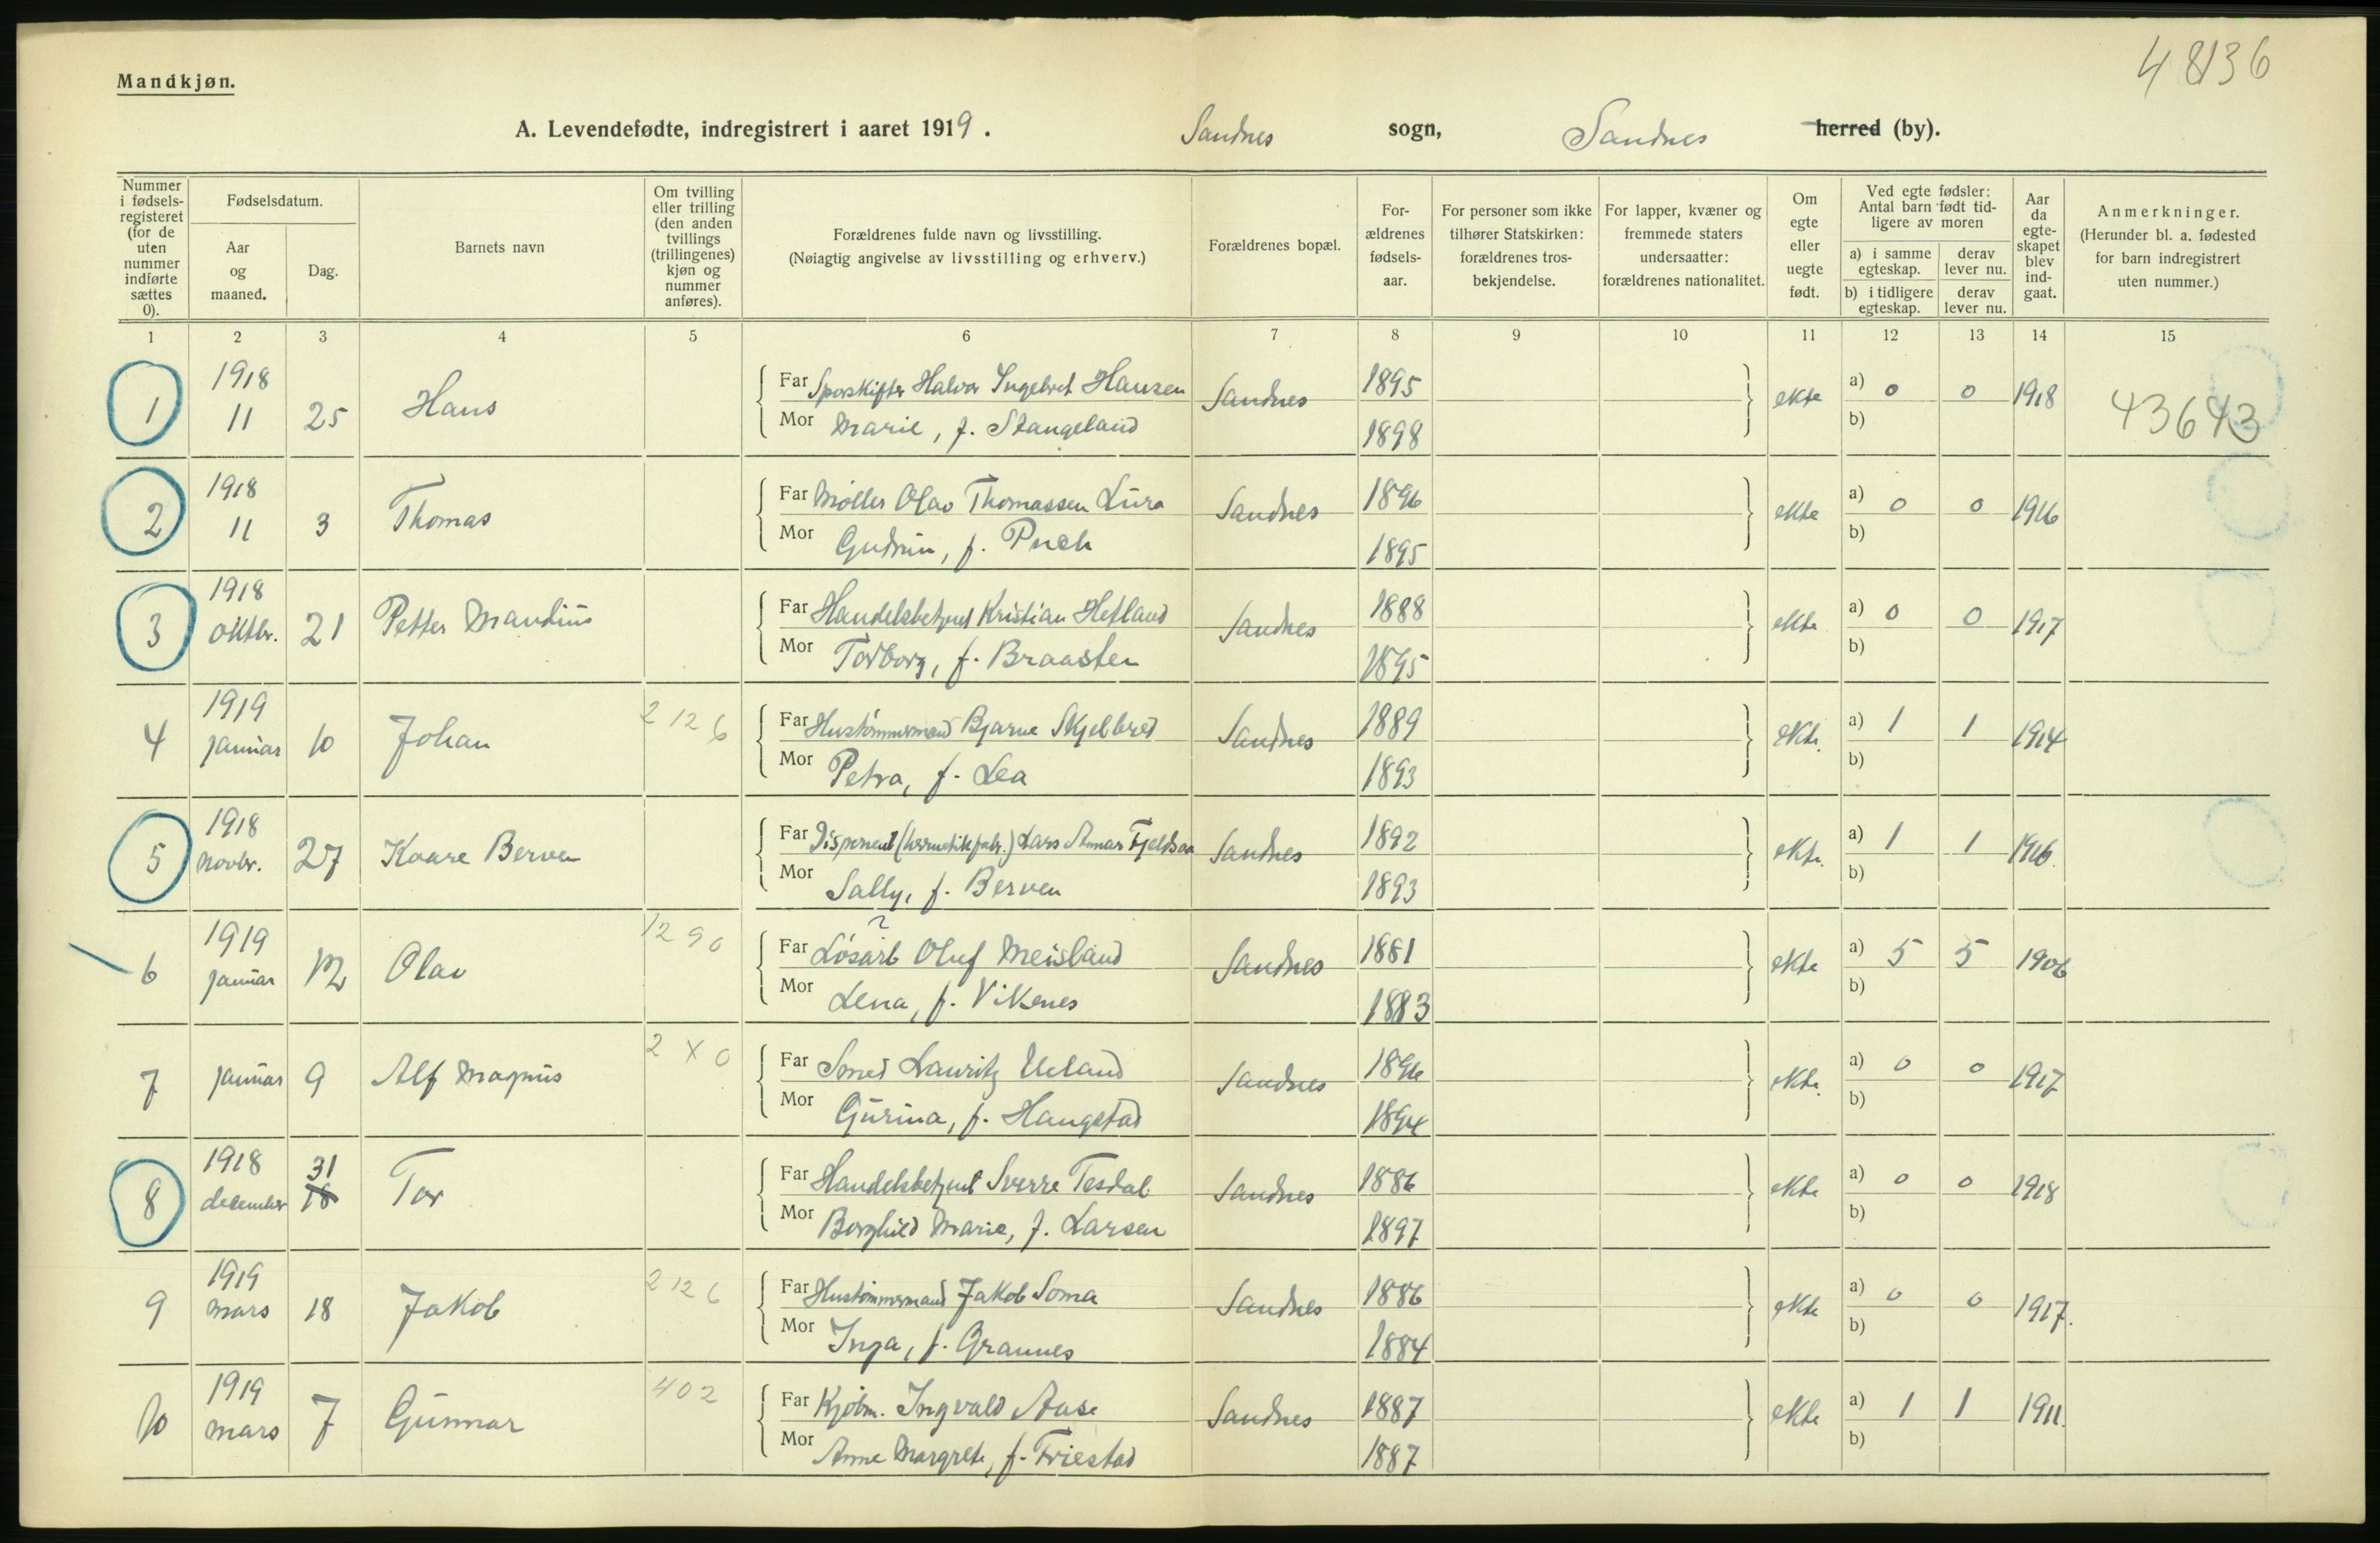 48136
Mandkjøn.
A. Levendefødte, indregistrert i aaret 1919. Sandnes sogn, Sandnes herred (by).
Nummer i fødselsregisteret (for de uten nummer indførte sættes 0).
Fødselsdatum.
Aar og maaned.
Dag.
Barnets navn
Om tvilling eller trilling (den anden tvillings (trillingenes) kjøn og nummer anføres).
Forældrenes fulde navn og livsstilling.
(Nøiagtig angivelse av livsstilling og erhverv.)
Forældrenes bopæl.
Forældrenes fødselsaar.
For personer som ikke tilhører Statskirken: forældrenes trosbekjendelse.
For lapper, kvæner og fremmede staters undersaatter: forældrenes nationalitet.
Om egte eller uegte født.
Ved egte fødsler: Antal barn født tidligere av moren
a) i samme egteskap.
derav lever nu.
b) i tidligere egteskap.
derav lever nu.
Aar da egteskapet blev indgaat.
Anmerkninger.
(Herunder bl. a. fødested for barn indregistrert uten nummer.)
1 2 3 4 5 6 7 8 9 10 11 12 13 14 15
1 1918 11 25 Hans Far Sporskifter Halvor Ingebret Hansen Sandnes 1895 ekte a) 0 0 1918 43643
Mor Marie, f. Stangeland 1898 b)
2 1918 11 3 Thomas Far Møller Olav Thomassen Lura Sandnes 1896 ekte a) 0 0 1916
Mor Gudrun, f. 1895 b)
3 1918 oktbr. 21 Petter Mandius Far Handelsbetjent Kristian Hetland Sandnes 1888 ekte a) 0 0 1917
Mor Torborg, f. Braasten 1895 b)
4 1919 januar 10 Johan 2 12 6 Far Hustømmermand Bjarne Skjelbred Sandnes 1889 ekte. a) 1 1 1914
Mor Petra, f. Lea 1893 b)
5 1918 novbr. 27 Kaare Berven Far Disponent (hermetikfabr.) Lars Fjeldsaa Sandnes 1892 ekte. a) 1 1 1916.
Mor Sally, f. Berven 1893 b)
6 1919 januar 12 Olav 12 90 Far Løsarb ? Oluf Meisland Sandnes 1881 ekte a) 5 5 1906
Mor Lena, f. Vikenes 1883 b)
7 januar 9 Alf Magnus 2 X 0 Far Smed Lauritz Ueland Sandnes 1896 ekte. a) 0 0 1917
Mor Gurina, f. Haugstad 1894 b)
8 1918 december 31 18 Tor Far Handelsbetjent Sverre Tesdal Sandnes 1886 ekte a) 0 0 1918
Mor Borghild Marie, f. Larsen 1897 b)
9 1919 mars 18 Jakob 2 12 6 Far Hustømmermand Jakob Soma Sandnes 1886 ekte a) 0 0 1917.
Mor Inga, f. Grannes 1884 b)
10 1919 mars 7 Gunnar 402 Far Kjøbm. Ingvald Aase Sandnes 1887 ekte a) 1 1 1911.
Mor Anne Margrete, f. Friestad 1887 b)